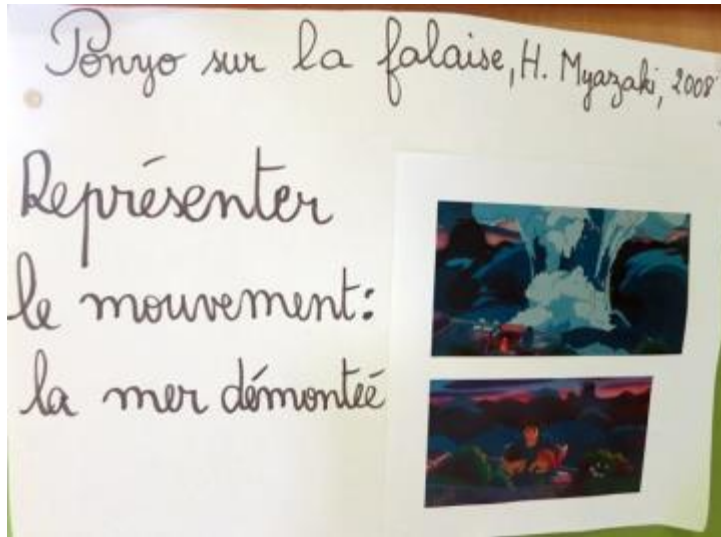 Ponyo sur la falaise, H. Myazaki, 2008
Représenter
le mouvement:
la mer démonteé